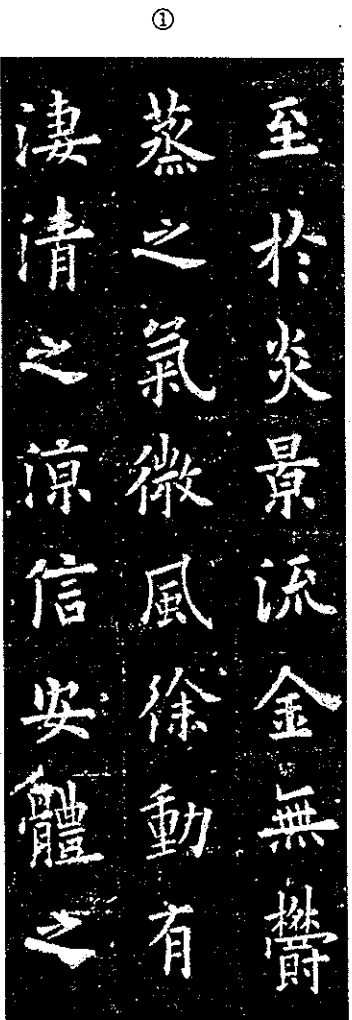 ①
至於炎景流金無鬱
蒸之氣微風徐動有
淒清之涼信安體之